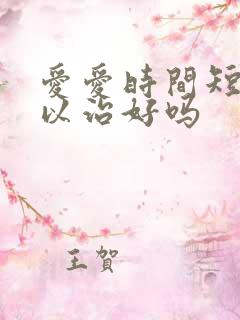 愛愛時間短
以治好吗
王賀